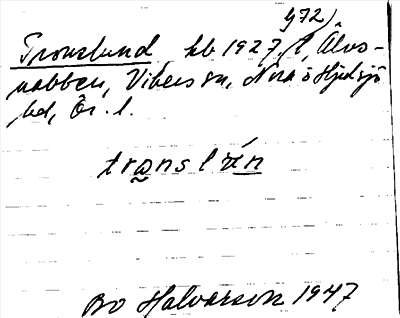 1972
Tronslund kb 1927, t, Älvs-
nabben, Vibers sn, Nora o Hjulsjö
bd, Ör. l.
transl
Bo Halvarson 1947